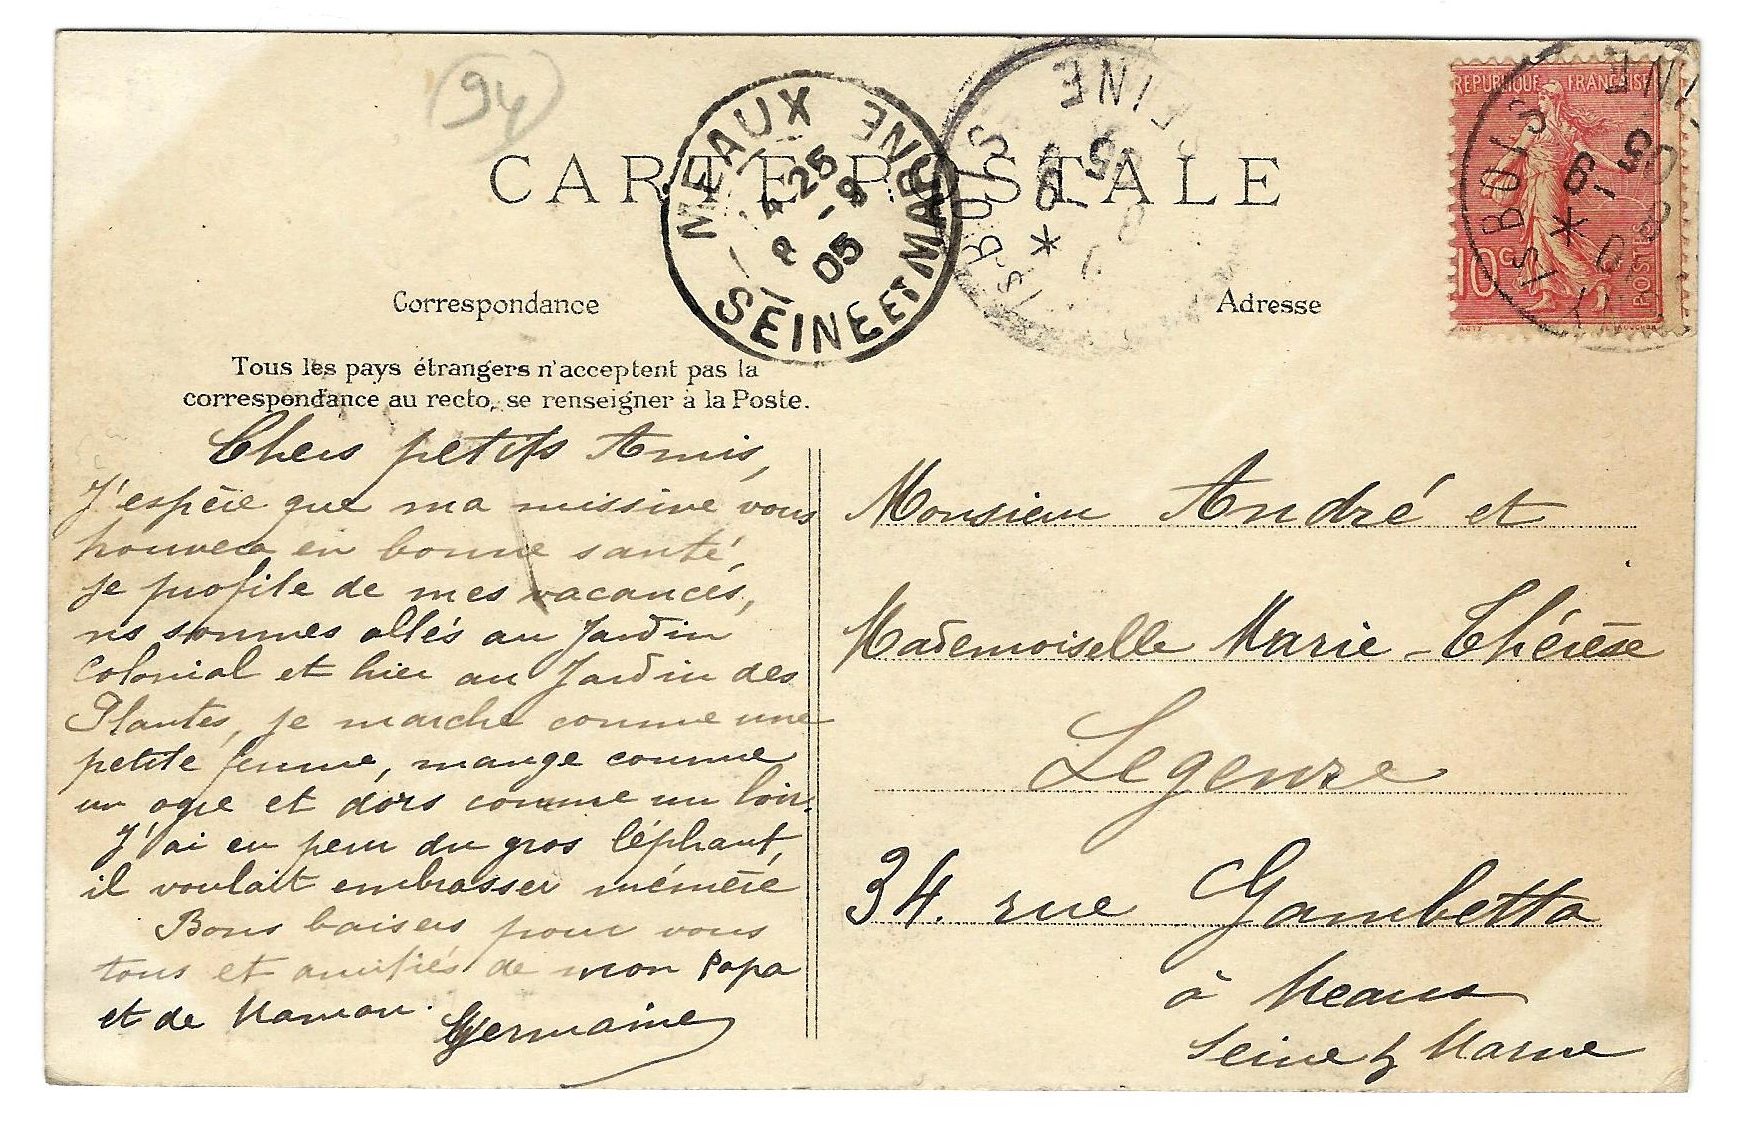 94
CARTE POSTALE
MEAUX
SEINE ET MARNE
25
8 - 9
05
BOIS
SEINE
REPUBLIQUE FRANÇAISE
10 c
POSTES
BOIS
Correspondance
Adresse
Tous les pays étrangers n'acceptent pas la
correspondance au recto, se renseigner à la Poste.
Chers petits Amis,
J'espère que ma missive vous
trouvera en bonne santé,
je profite de mes vacances,
ns sommes allés au Jardin
Colonial et hier au Jardin des
Plantes, je marche comme une
petite femme, mange comme
un ogre et dors comme un loir.
J'ai eu peur du gros léphant,
il voulait embrasser mémère
Bons baisers pour vous
tous et amitiés de mon Papa
et de Maman. Germaine
Monsieur André et
Mademoiselle Marie-Thérèse
Legenre
34. rue Gambetta
à Meaux
Seine & Marne